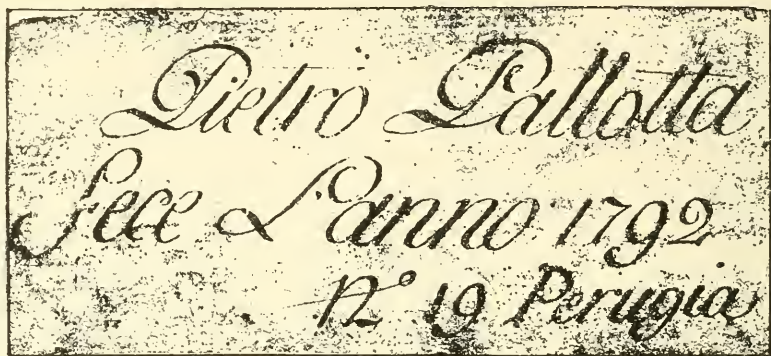 Pietro Pallotta
fece L'anno 1792
N.° 19 Perugia